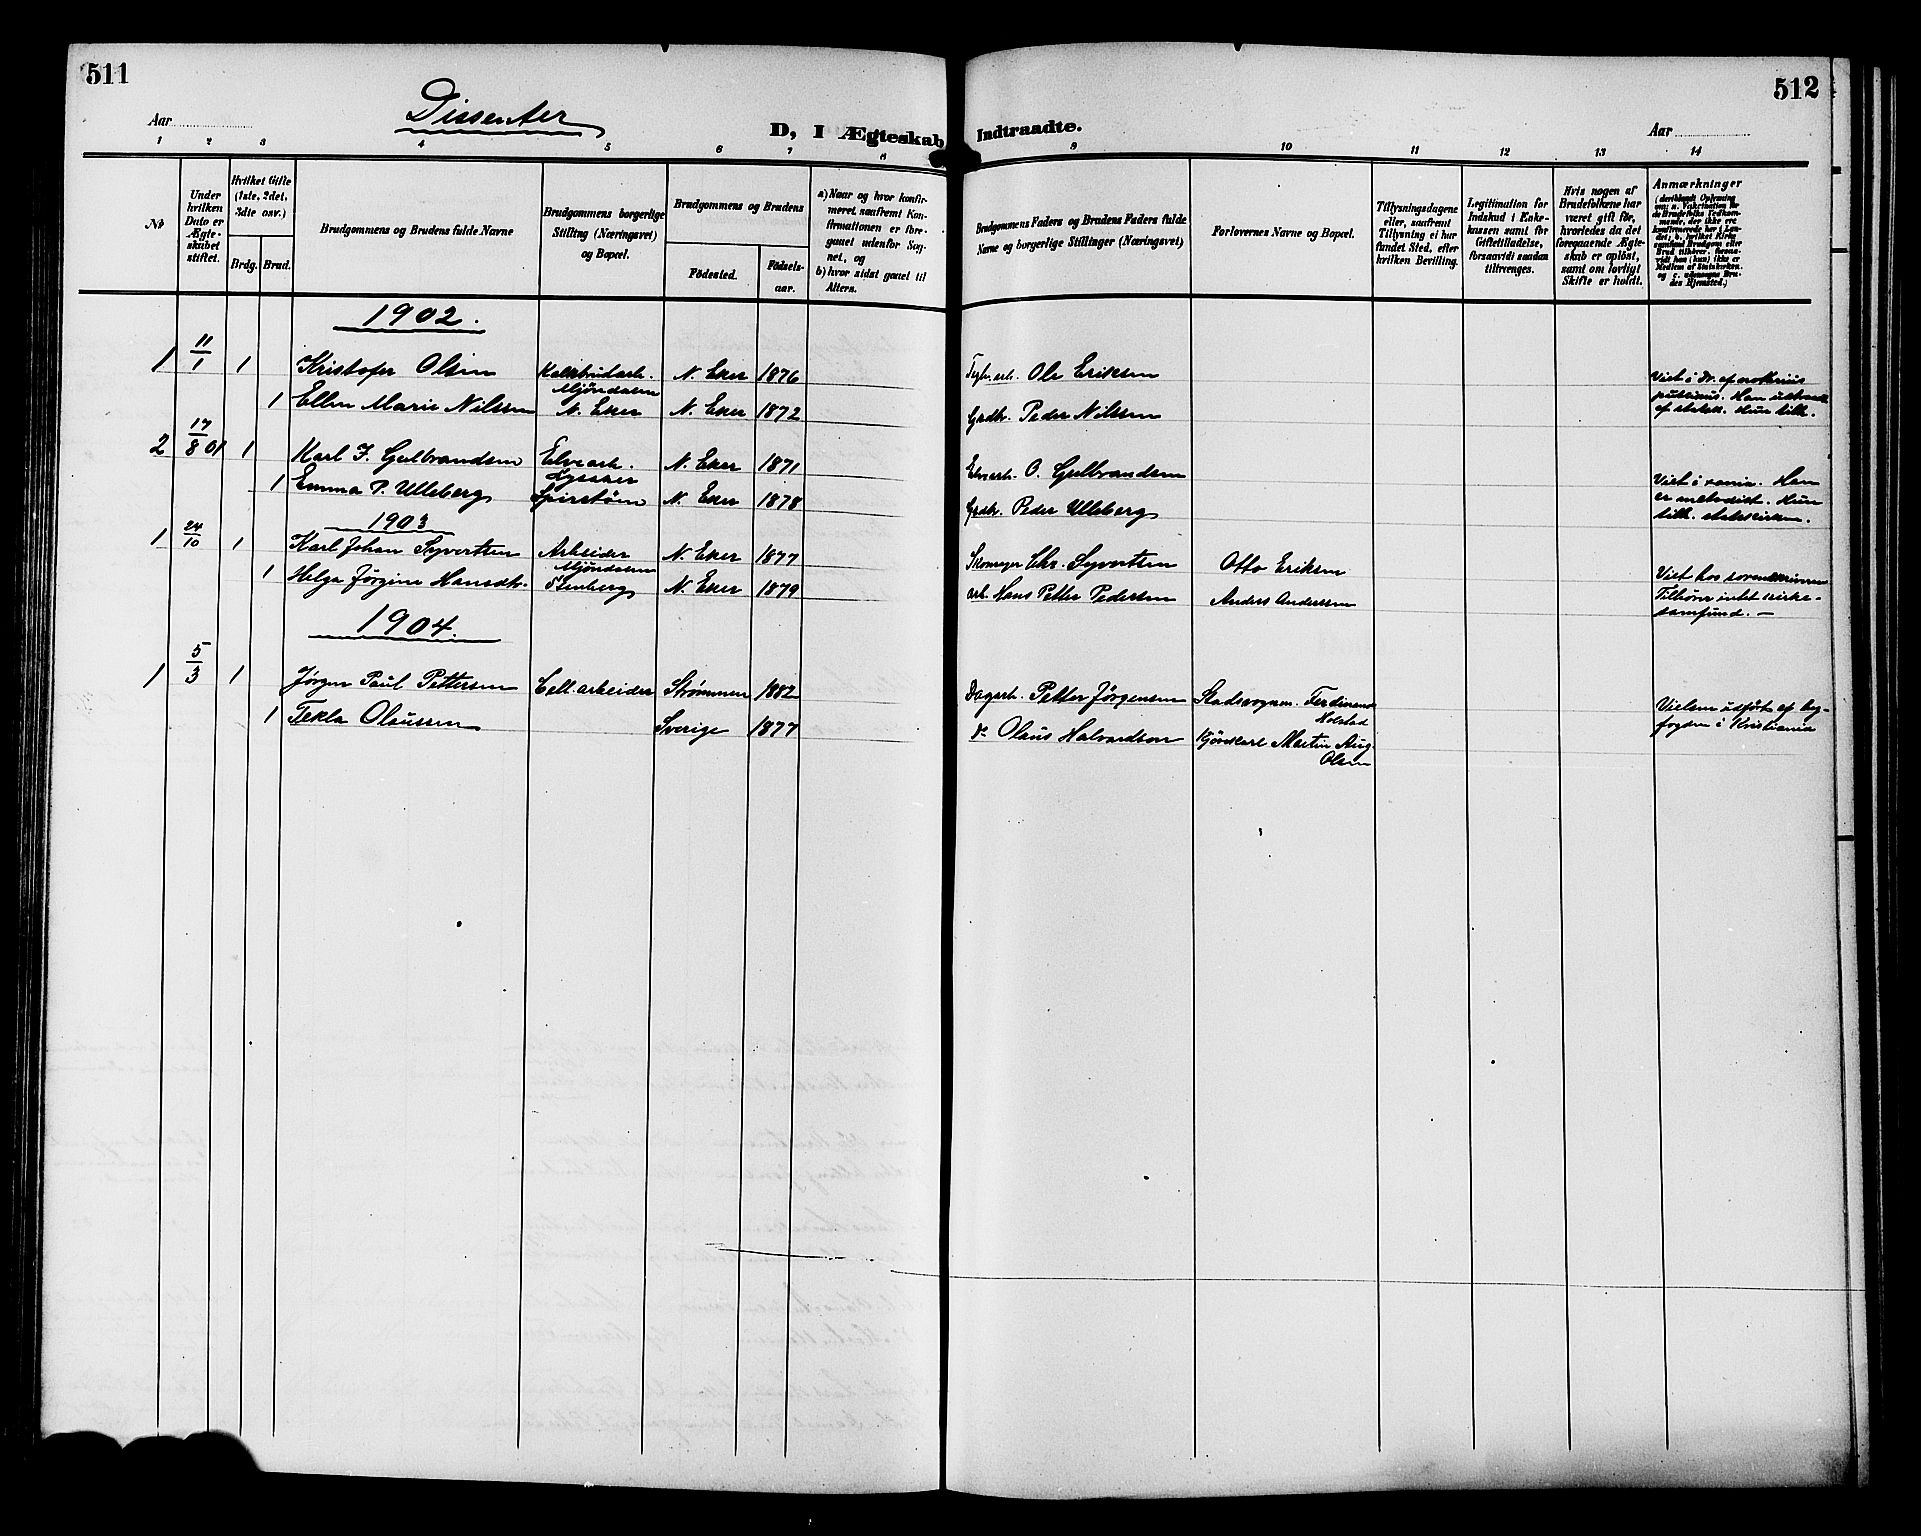 511
512
Dissenter
Aar
D, I Ægteskab Indtraadte.
Aar
1 2 3 4 5 6 7 8 9 10 11 12 13 14
No
Under hvilken Dato er Ægteskabet stiftet.
Hvilket Gifte (1ste, 2det, 3die osv.)
Brdg. Brud.
Brudgommens og Brudens fulde Navne
Brudgommens borgerlige Stilling (Næringsvei) og Bopæl.
Brudgommens og Brudens
Födested.
Födsels-aar.
a) Naar og hvor konfirmeret, saafremt Konfirmationen er foregaaet udenfor Sognet, og
b) hvor sidst gaaet til Alters.
Brudgommens Faders og Brudens Faders fulde Navne og borgerlige Stillinger (Næringsvei)
Forlovernes Navne og Bopæl.
Tillysningsdagene eller, saafremt Tillysning ei har fundet Sted, efter hvilken Bevilling.
Legitimation for Indskud i Enkekassen samt for Giftetilladelse, forsaavidt saadan tiltrænges.
Hvis nogen af Brudefolkene har været gift för, hvorledes da det foregaaende Ægteskab er oplöst, samt om lovligt Skifte er holdt.
Anmærkninger
1902.
1 11/1 1 Kristofer Olsen Kalkbrudarb. Mjøndalen N. Eker 1876 Teglv. arb. Ole Eriksen Viet i Dr. af notarius
1 Ellen Marie Nilssen N. Eker N. Eker 1872 Grdbr. Peder Nilssen publicus. Han udtraadt af statsk. Hun tilh.
2 17/8 01 1 Karl F. Gulbrandsen Elvearb. N. Eker 1871 Elvearb. O. Gulbrandsen Viet i Han
1 Emma P. Ulleberg N. Eker 1878 Grdbr. Peder Ulleberg er metodist. Hun tilh. statskirken.
1903
1 24/10 1 Karl Johan Syvertsen Arbeider Mjøndalen N. Eker 1877 Skomager Chr. Syvertsen Otto Eriksen Viet hos sorenskriveren
1 Helga Jørgine Hansdtr. Stenberg N. Eker 1879 arb. Hans Petter Pedersen Anders Anderssen Tilhører intet kirke-samfund. —
1904.
1 5/3 1 Jørgen Paul Pettersen Cell. arbeider Strømmen 1882 Dagarb. Petter Jørgensen Ferdinand Holstad Vielsen udførte af by-
1 Tekla Olaussen Sverige 1877 do Olaus Halvardson Martin Aug. Olsen fogden i Kristiania